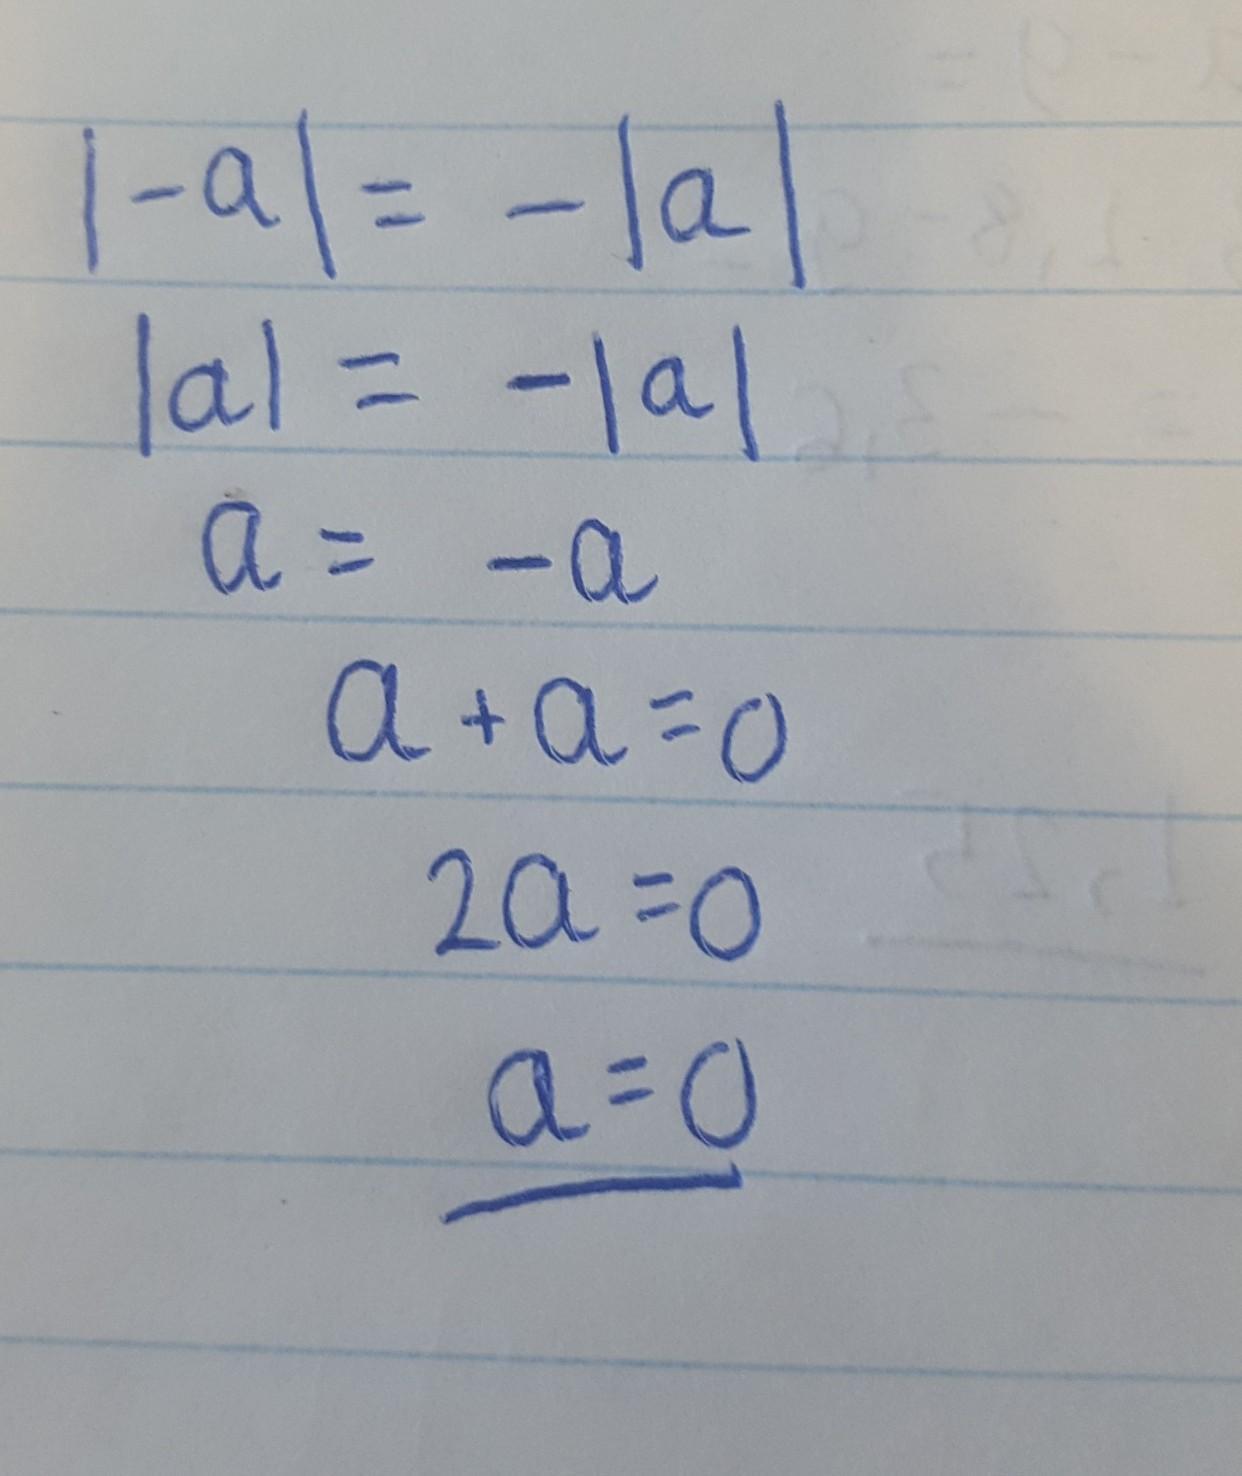 |-a| = -|a|
|a| = -|a|
a = -a
a + a = 0
2a = 0
a = 0